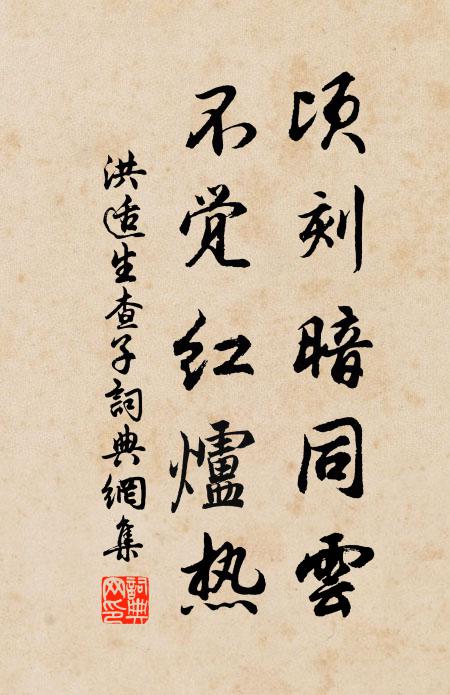 顷刻暗同雲
不觉红爐热
洪适生查子詞典網集
詞典网印